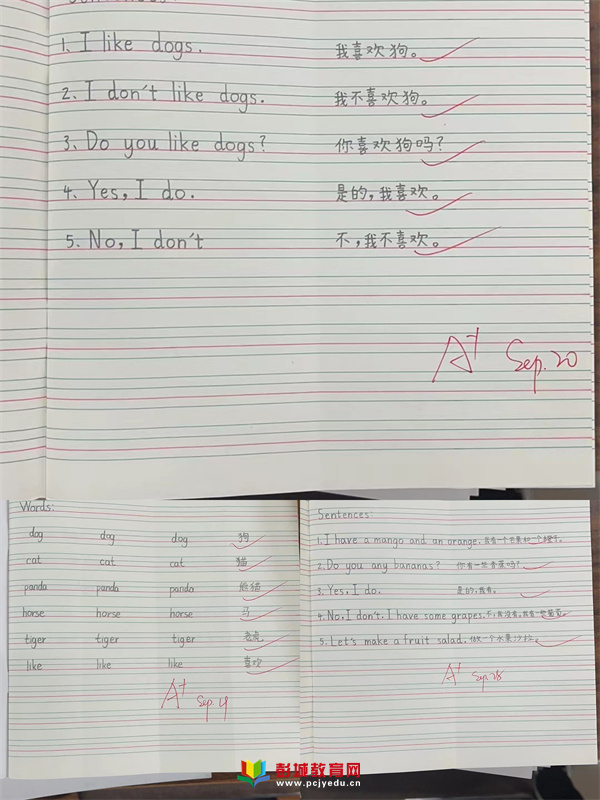 1. I like dogs. 我喜欢狗。
2. I don't like dogs. 我不喜欢狗。
3. Do you like dogs? 你喜欢狗吗?
4. Yes, I do. 是的,我喜欢。
5. No, I don't 不,我不喜欢。
A+ Sep. 20
Words:
dog dog dog 狗
cat cat cat 猫
panda panda panda 熊猫
horse horse horse 马
tiger tiger tiger 老虎
like like like 喜欢
A+ Sep.
Sentences:
1. I have a mango and an orange. 我有一个芒果和一个橙子。
2. Do you any bananas? 你有一些香蕉吗?
3. Yes, I do. 是的,我有。
4. No, I don't. I have some grapes. 不,我没有,我有一些葡萄。
5. Let's make a fruit salad. 做一个水果沙拉。
A+ Sep. 28
彭城教育网
www.pcjyedu.cn